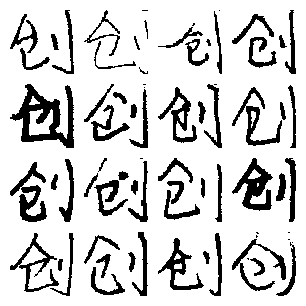 创创创创
创创创创
创创创创
创创创创